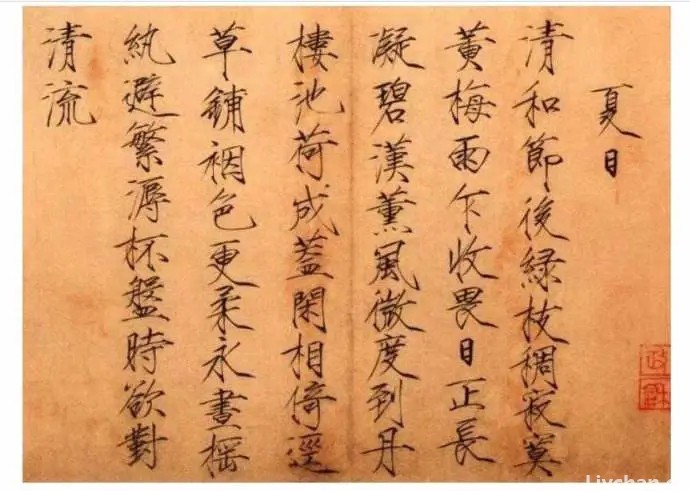 夏日
清和節後緑枝稠寂寞
黃梅雨乍收畏日正長
凝碧漢薰風微度到丹
樓池荷成蓋閑相倚逕
草鋪裀色更柔永晝搖
紈避繁溽杯盤時欲對
清流